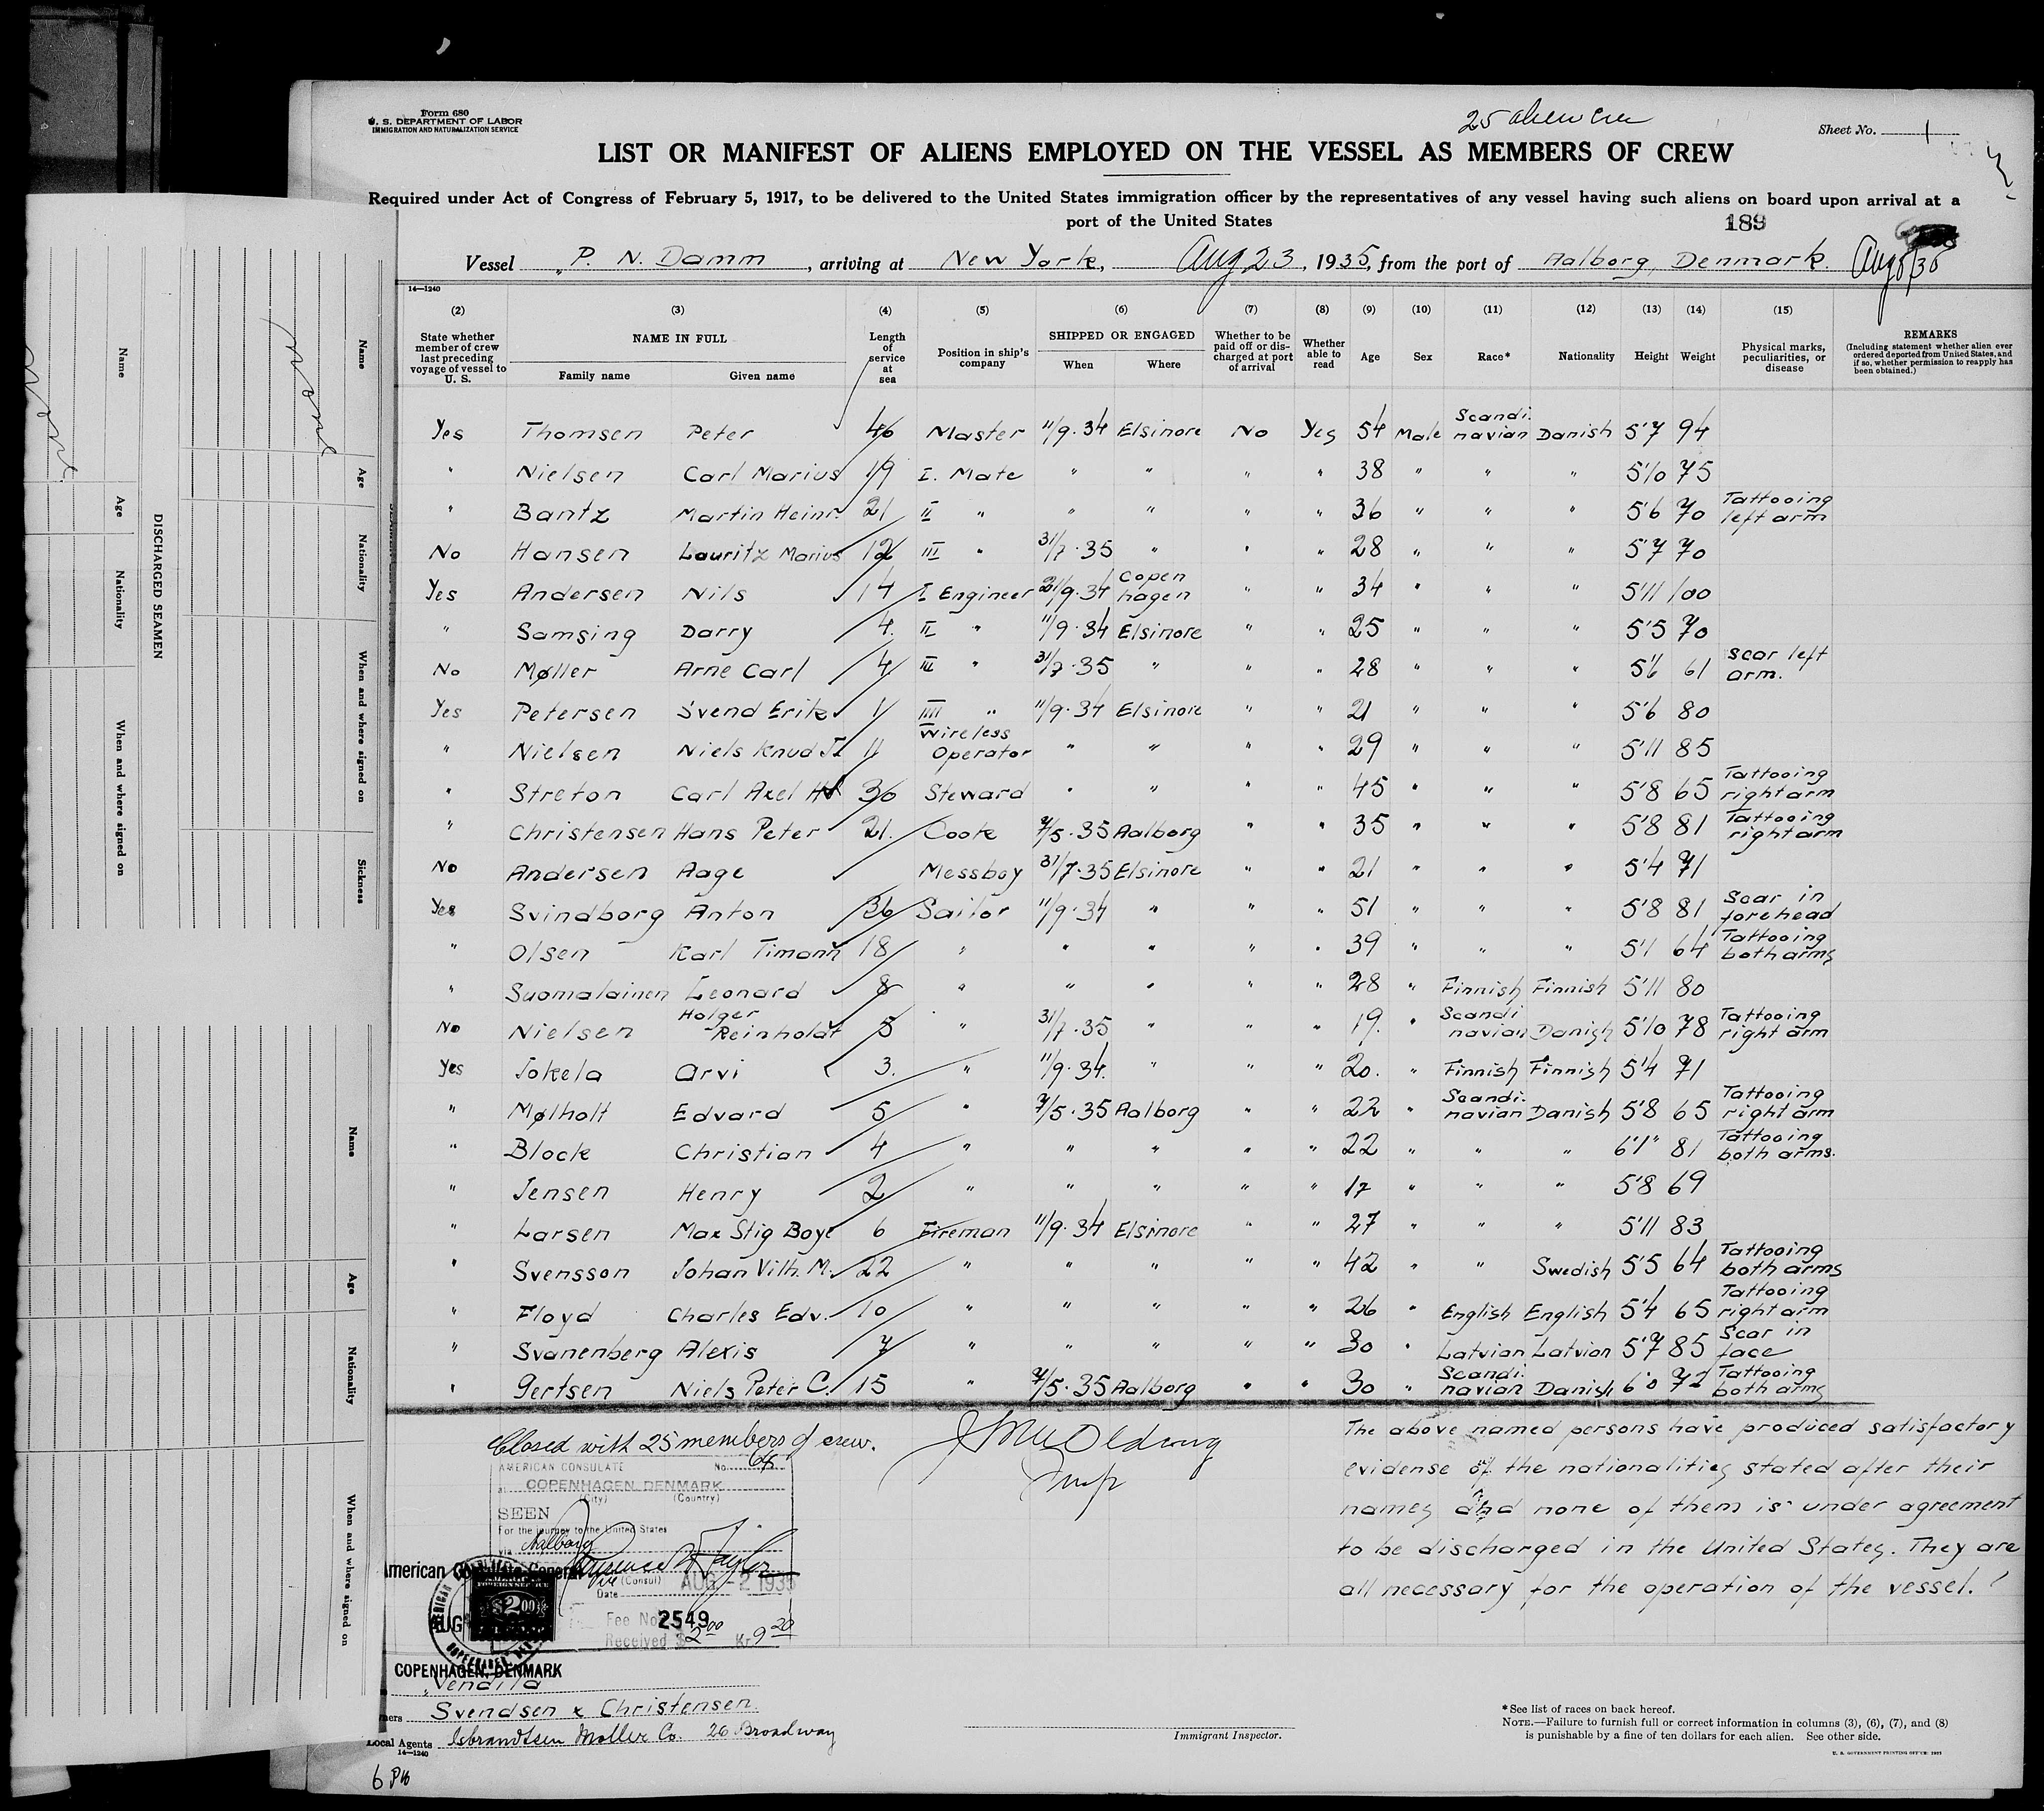 Form 680
U. S. DEPARTMENT OF LABOR
IMMIGRATION AND NATURALIZATION SERVICE
25 alien crew
Sheet No. 1
LIST OR MANIFEST OF ALIENS EMPLOYED ON THE VESSEL AS MEMBERS OF CREW
Required under Act of Congress of February 5, 1917, to be delivered to the United States immigration officer by the representatives of any vessel having such aliens on board upon arrival at a
port of the United States
189
Vessel "P. N. Damm, arriving at New York, Aug 23, 1935, from the port of Aalborg, Denmark.
14—1240
(2) (3) (4) (5) (6) (7) (8) (9) (10) (11) (12) (13) (14) (15)
State whether member of crew last preceding voyage of vessel to U. S.
NAME IN FULL
Family name Given name
Length of service at sea
Position in ship's company
SHIPPED OR ENGAGED
When Where
Whether to be paid off or discharged at port of arrival
Whether able to read
Age Sex Race* Nationality Height Weight
Physical marks, peculiarities, or disease
REMARKS
(Including statement whether alien ever ordered deported from United States, and if so, whether permission to reapply has been obtained.)
Yes Thomsen Peter 40 Master 11/9.34 Elsinore No Yes 54 Male Scandi. navian Danish 5'7 94
" Nielsen Carl Marius 19 I. Mate " " " " 38 " " " 5'10 75
" Bantz Martin Heinr. 21 II " " " " " 36 " " " 5'6 70 Tattooing left arm
No Hansen Lauritz Marius 12 III " 31/7.35 " " " 28 " " " 5'7 70
Yes Andersen Nils 14 I Engineer 21/9.34 Copen hagen " " 34 " " " 5'11 100
" Samsing Darry 4. II " 11/9.34 Elsinore " " 25 " " " 5'5 70
No Møller Arne Carl 4 III " 31/7.35 " " " 28 " " " 5'6 61 Scar left arm.
Yes Petersen Svend Erik 1 IIII " 11/9.34 Elsinore " " 21 " " " 5'6 80
" Nielsen Niels Knud 11 Wireless Operator " " " " 29 " " " 5'11 85
" Streton Carl Axel 36 Steward " " " " 45 " " " 5'8 65 Tattooing right arm
" Christensen Hans Peter 21. Cook 7/5.35 Aalborg " " 35 " " " 5'8 81 Tattooing right arm
No Andersen Aage Messboy 31/7.35 Elsinore " " 21 " " " 5'4 71
Yes Svindborg Anton 36 Sailor 11/9.34 " " " 51 " " " 5'8 81 Scar in forehead
" Olsen Karl Timann 18 " " " " " 39 " " " 5'1 64 Tattooing both arms
" Suomalainen Leonard 8 " " " " " 28 " Finnish Finnish 5'11 80
No Nielsen Holger Reinholdt 5 " 31/7.35 " " " 19. " Scandi navian Danish 5'10 78 Tattooing right arm
Yes Jokela Arvi 3. " 11/9.34. " " " 20. " Finnish Finnish 5'4 71
" Mølholt Edvard 5 " 7/5.35 Aalborg " " 22 " Scandi. navian Danish 5'8 65 Tattooing right arm
" Block Christian 4 " " " " " 22 " " " 6'1" 81 Tattooing both arms.
" Jensen Henry 2 " " " " " 17 " " " 5'8 69
" Larsen Max Stig Boye 6 Fireman 11/9.34 Elsinore " " 27 " " " 5'11 83
" Svensson Johan Vilh. M. 22 " " " " " 42 " " Swedish 5'5 64 Tattooing both arms
" Floyd Charles Edv. 10 " " " " " 26 " English English 5'4 65 Tattooing right arm
" Svanenberg Alexis 7 " " " " " 30 " Latvian Latvian 5'7 85 Scar in face
" Gertsen Niels Peter C. 15 " 7/5.35 Aalborg " " 30 " Scandi. navian Danish 6'0 72 Tattooing both arms
Closed with 25 members of crew.
The above named persons have produced satisfactory
evidense of the nationalities stated after their
names and none of them is under agreement
to be discharged in the United States. They are
all necessary for the operation of the vessel.
AMERICAN CONSULATE No. 64
at COPENHAGEN, DENMARK
(City) (Country)
SEEN
For the journey to the United States
via Aalborg
American Consulate General
Vice (Consul)
Date AUG -2 1935
FOREIGN SERVICE
$2.00
AUG
Fee No. 2549
Received $ 2.00 Kr 9.20
COPENHAGEN, DENMARK
"Vendila"
Svendsen & Christensen.
Local Agents Isbrandtsen Moller Co. 26 Broadway
14—1240
Immigrant Inspector.
*See list of races on back hereof.
NOTE.—Failure to furnish full or correct information in columns (3), (6), (7), and (8)
is punishable by a fine of ten dollars for each alien. See other side.
U. S. GOVERNMENT PRINTING OFFICE
6 PM
DISCHARGED SEAMEN
Name Age Nationality When and where signed on
Name Age Nationality When and where signed on Sickness
Name Age Nationality When and where signed on